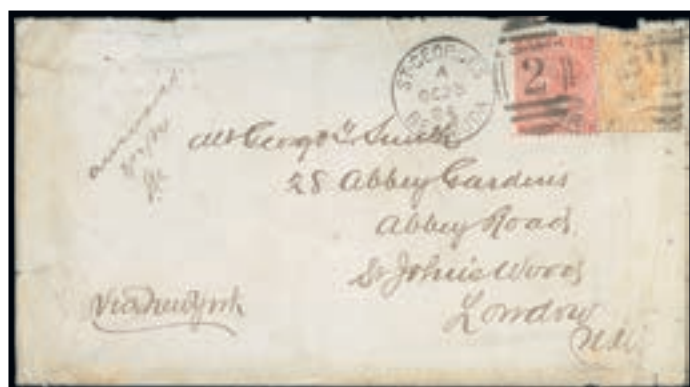 ST GEORGES
A
OC 23
BERMUDA
2
answered
Mr George Smith
28 Abbey Gardens
Abbey Road
St John's Wood
London
N.W.
Via New York